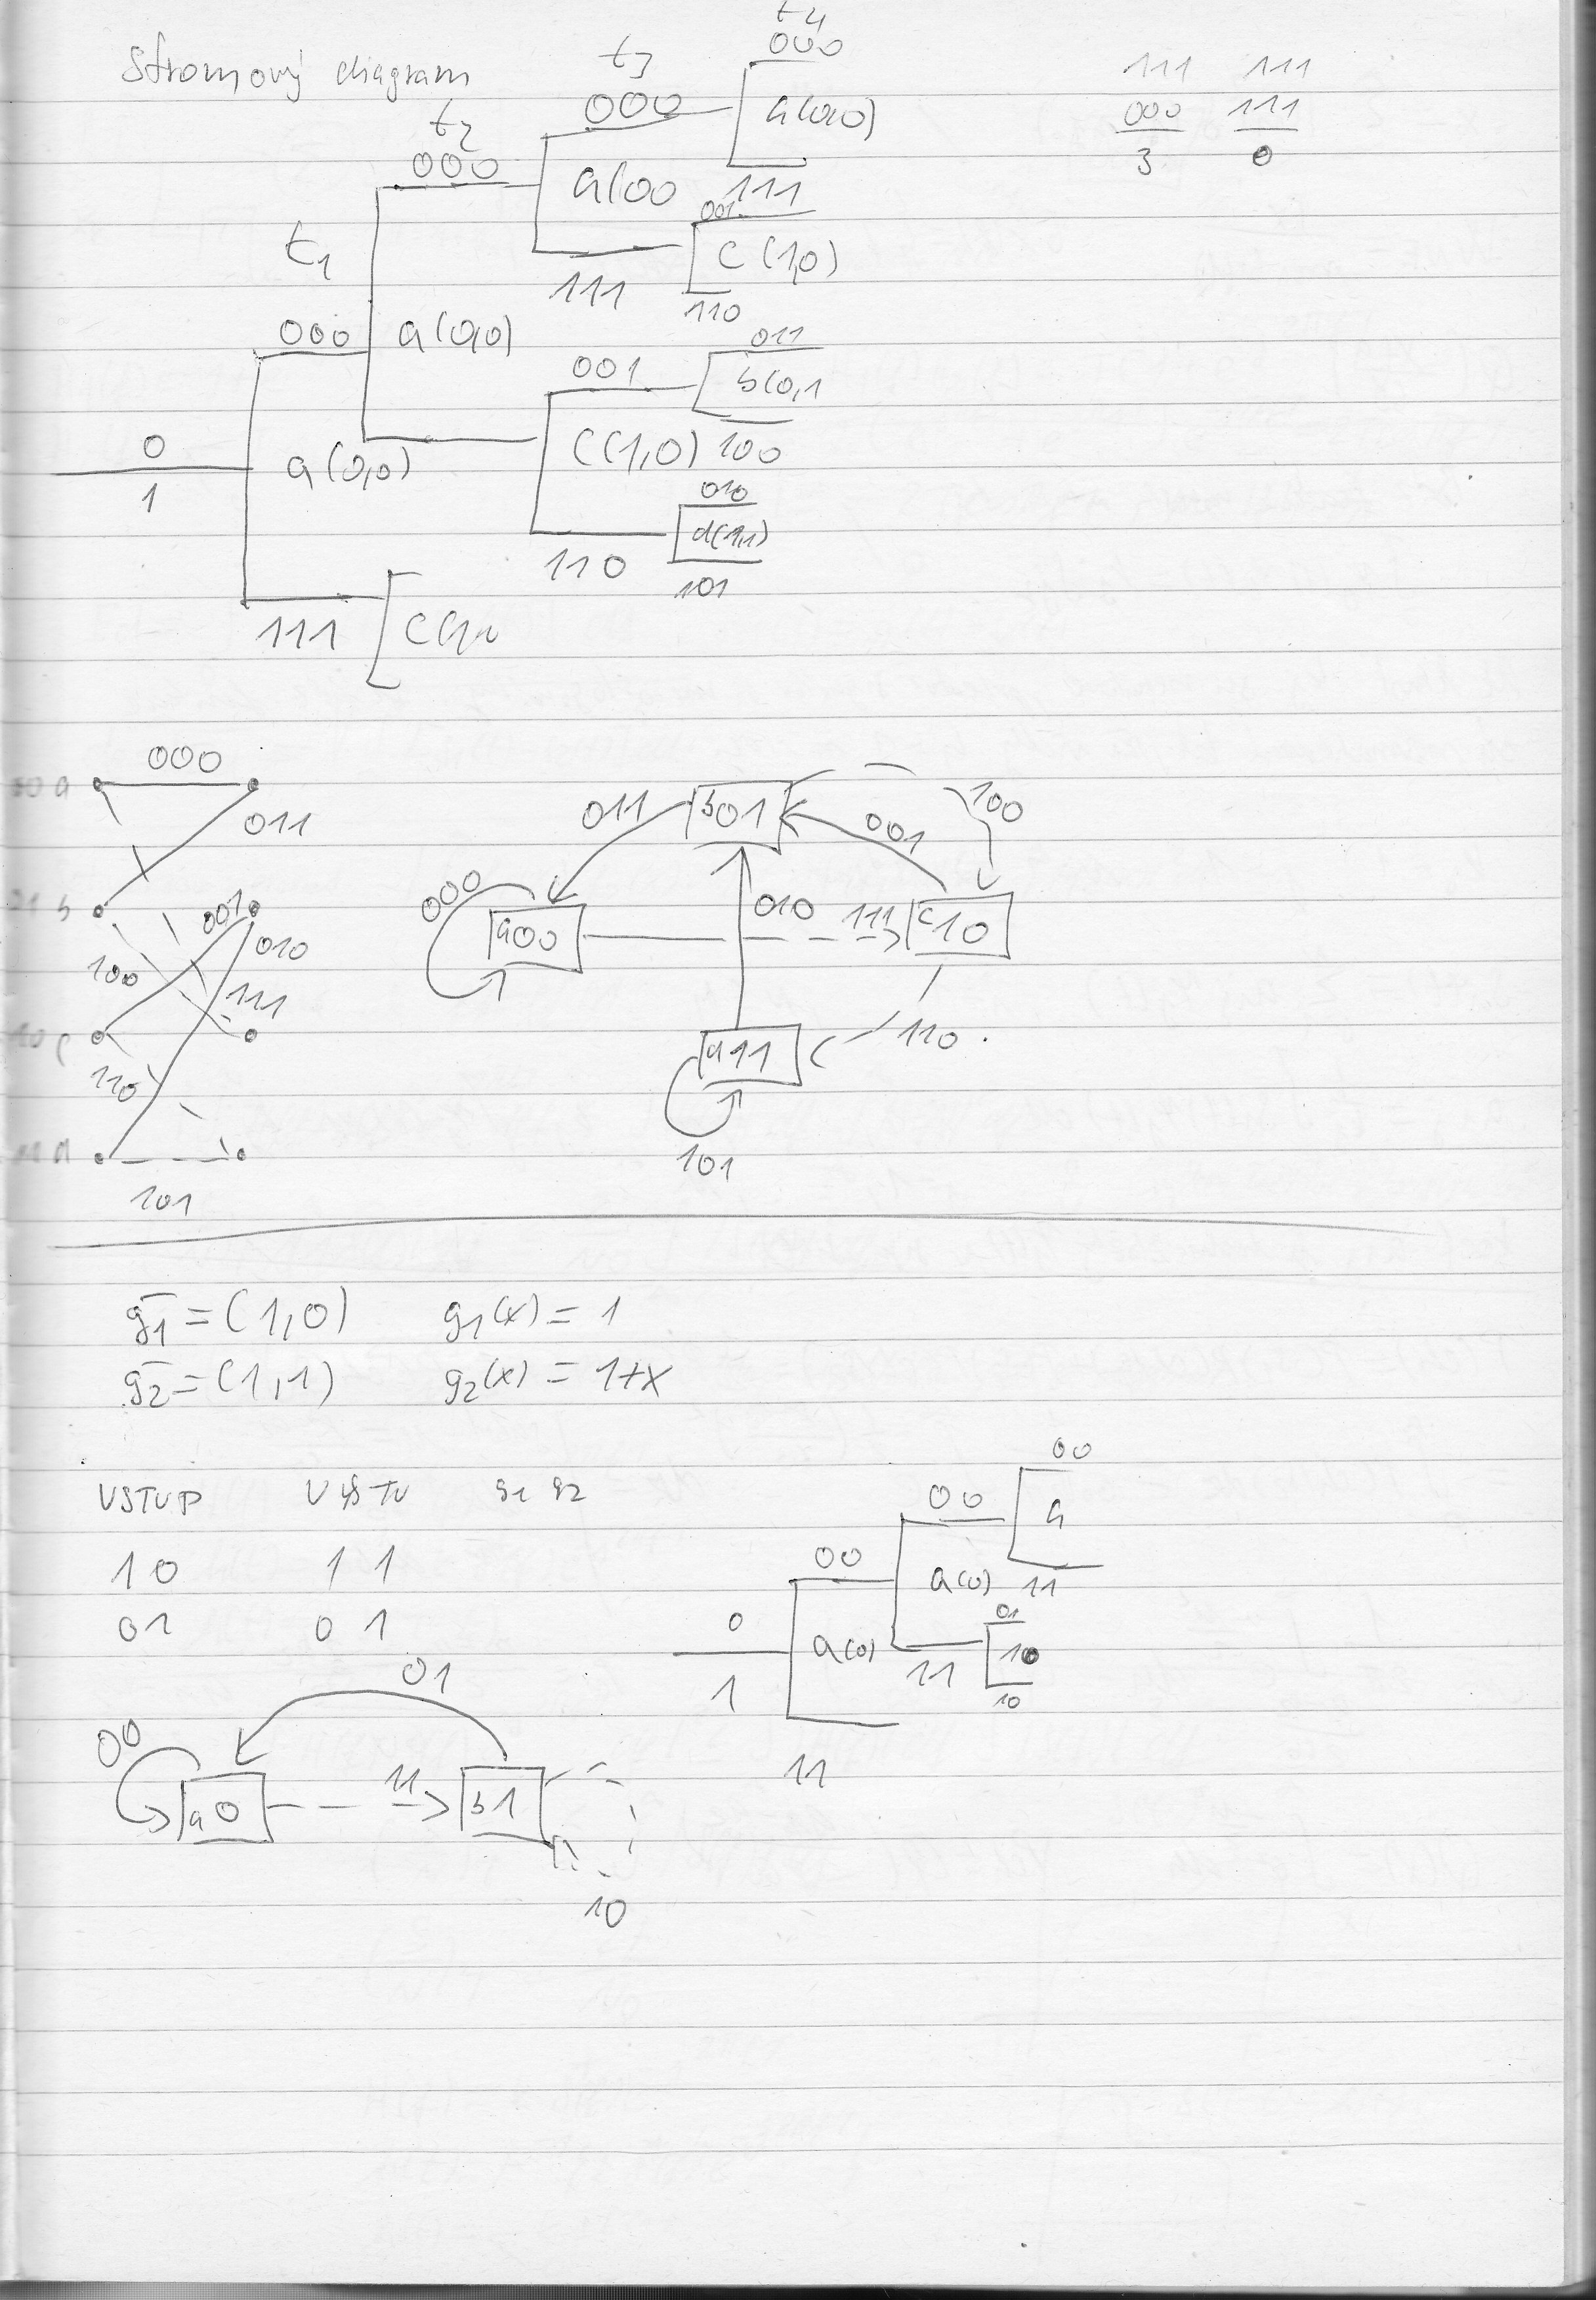 Stromový diagram
t4
000
t3
000
a(0,0)
111 111
000 111
3 0
t2
000
a(00
111
001
c(1,0)
111
110
t1
000
a(0,0)
011
001
b(0,1
100
c(1,0)
0
1
a(0,0)
010
d(1,1)
110
101
111
000
a
011
b
001
010
100
111
c
110
101
011
b01
100
001
000
a00
010
111
c10
110
d11
101
g1 = (1,0) g1(x) = 1
g2 = (1,1) g2(x) = 1+x
VSTUP VÝSTU g1 g2
10 1 1
01 0 1
00
00
a
00
a(0)
11
01
0
1
a(0)
11
10
10
11
01
00
a0
11
b1
10